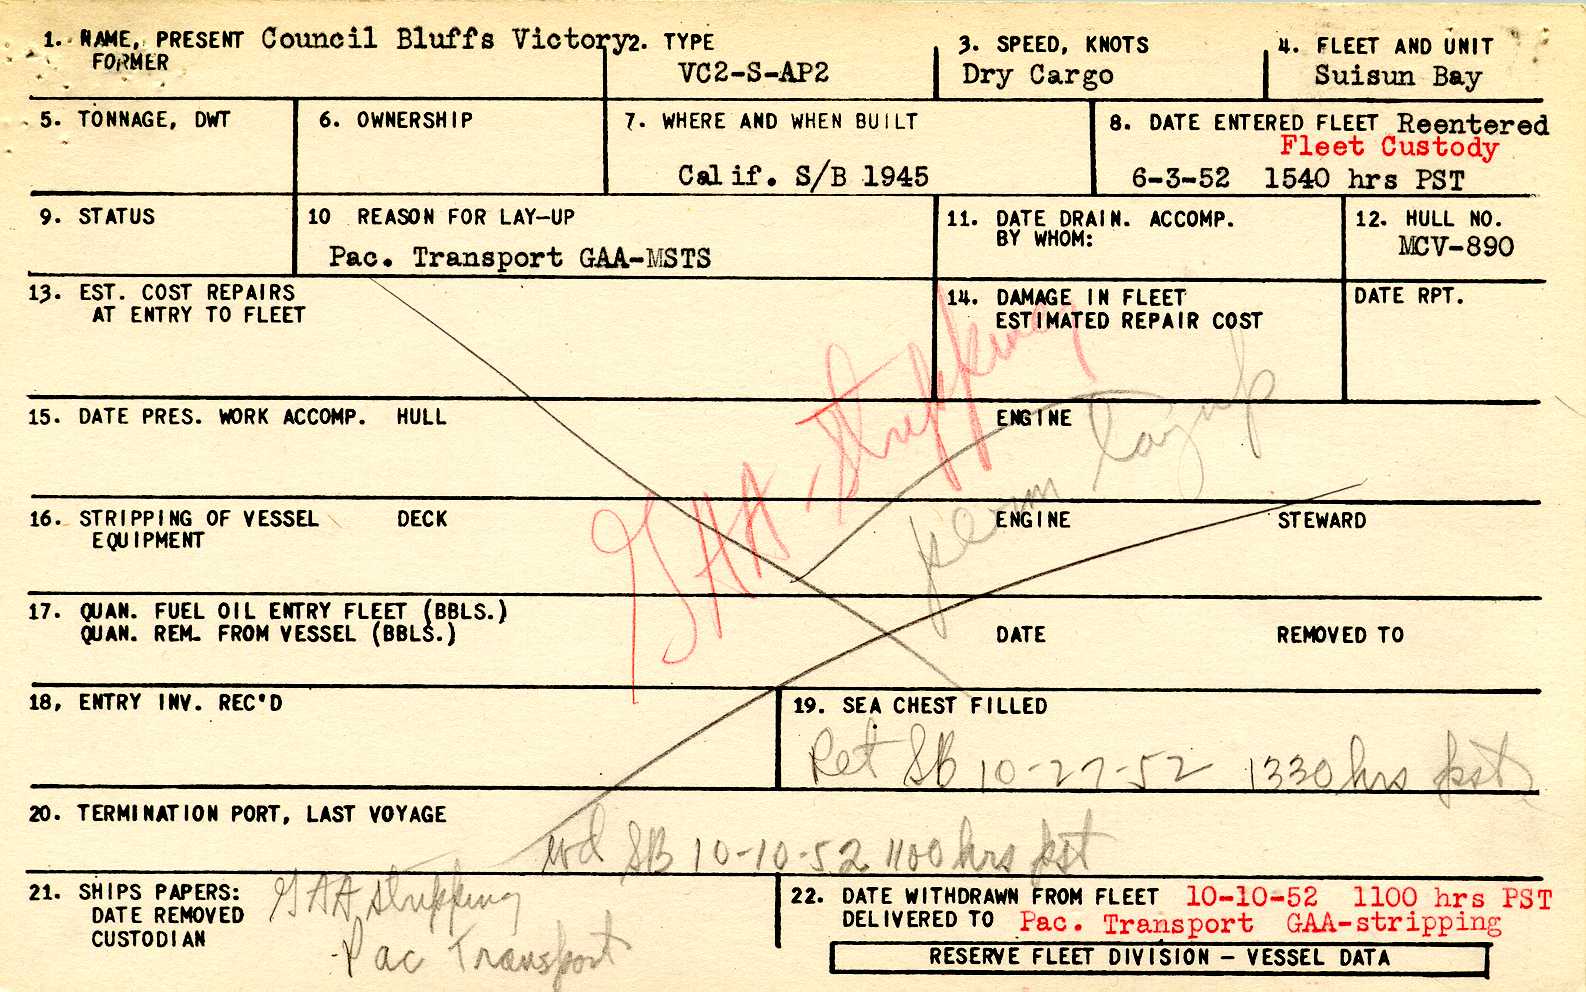 1. NAME, PRESENT Council Bluffs Victory 2. TYPE 3. SPEED, KNOTS 4. FLEET AND UNIT
FORMER VC2-S-AP2 Dry Cargo Suisun Bay
5. TONNAGE, DWT 6. OWNERSHIP 7. WHERE AND WHEN BUILT 8. DATE ENTERED FLEET Reentered
Fleet Custody
Calif. S/B 1945 6-3-52 1540 hrs PST
9. STATUS 10 REASON FOR LAY-UP 11. DATE DRAIN. ACCOMP. 12. HULL NO.
BY WHOM: MCV-890
Pac. Transport GAA-MSTS
13. EST. COST REPAIRS 14. DAMAGE IN FLEET DATE RPT.
AT ENTRY TO FLEET ESTIMATED REPAIR COST
GAA-stripping
perm layup
15. DATE PRES. WORK ACCOMP. HULL ENGINE
16. STRIPPING OF VESSEL DECK ENGINE STEWARD
EQUIPMENT
17. QUAN. FUEL OIL ENTRY FLEET (BBLS.)
QUAN. REM. FROM VESSEL (BBLS.) DATE REMOVED TO
18, ENTRY INV. REC'D 19. SEA CHEST FILLED
Ret SB 10-27-52 1330 hrs pst
20. TERMINATION PORT, LAST VOYAGE
wd SB 10-10-52 1100 hrs pst
21. SHIPS PAPERS: GAA stripping 22. DATE WITHDRAWN FROM FLEET 10-10-52 1100 hrs PST
DATE REMOVED DELIVERED TO Pac. Transport GAA-stripping
CUSTODIAN Pac Transport
RESERVE FLEET DIVISION – VESSEL DATA